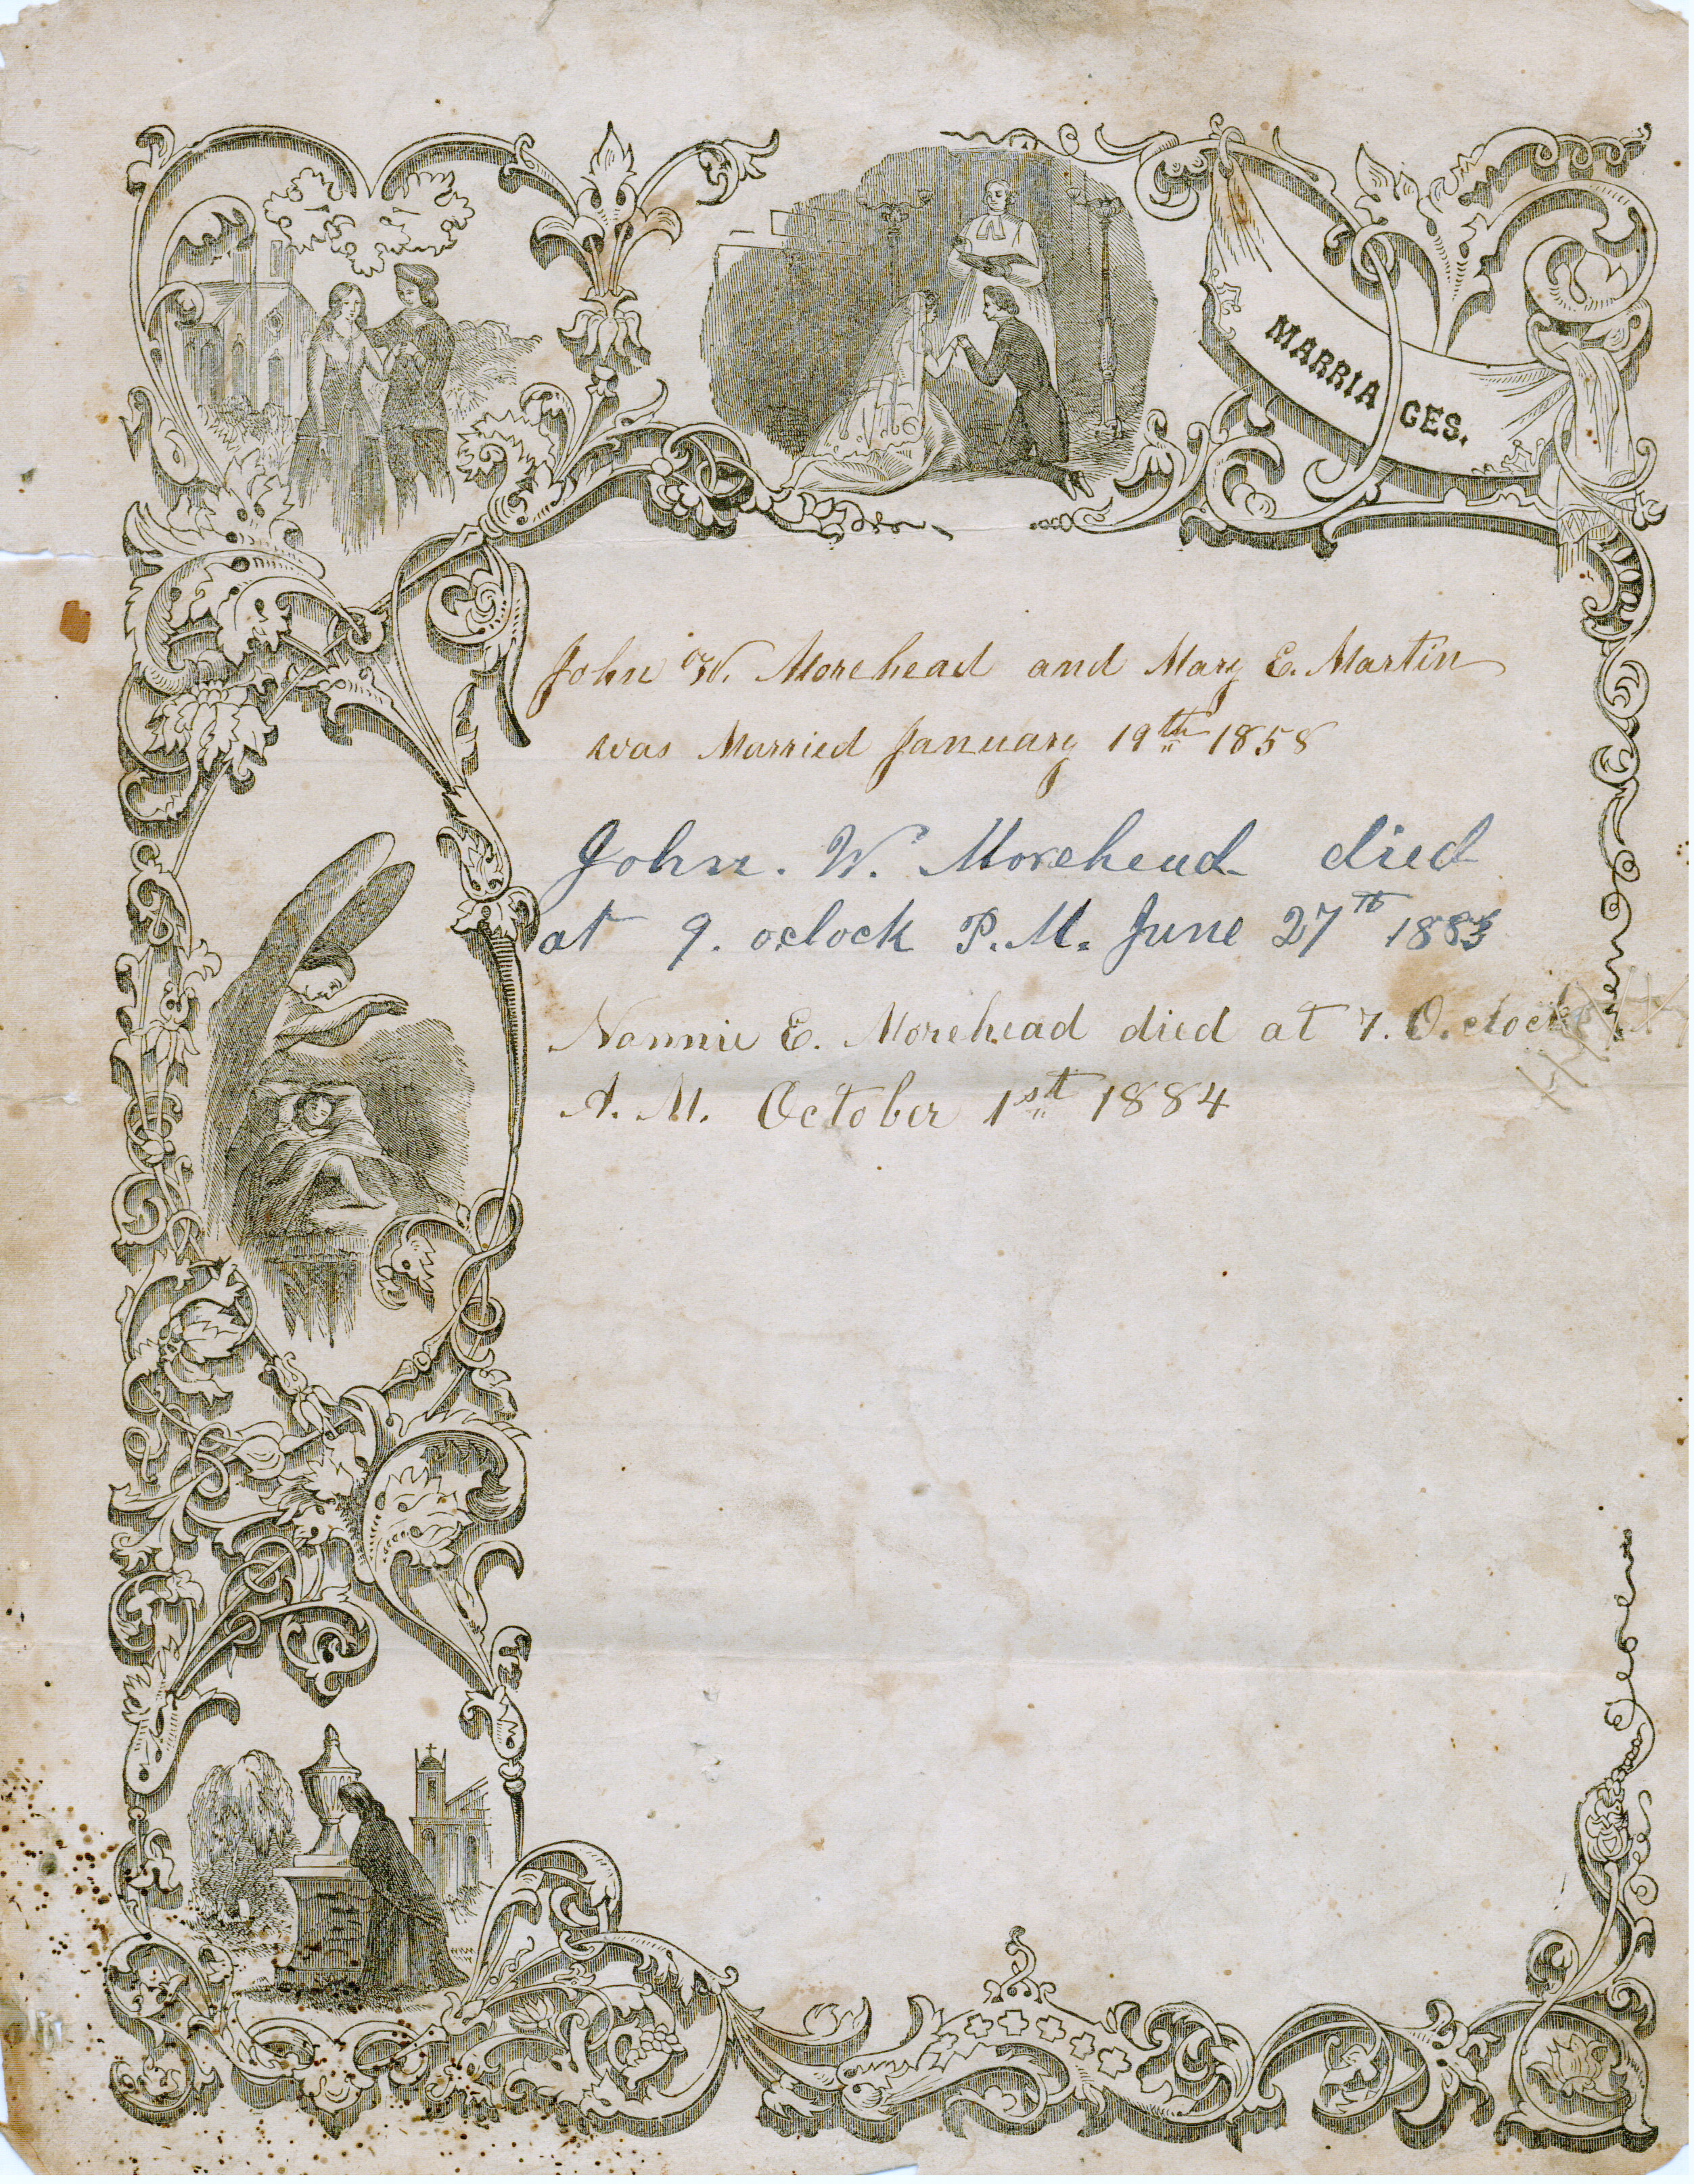 MARRIAGES.
John W. Morehead and Mary E. Martin
was Married January 19th 1858
John. W. Morehead died
at 9. oclock P.M. June 27th 1883
Nannie E. Morehead died at 7. O. clock
A. M. October 1st 1884